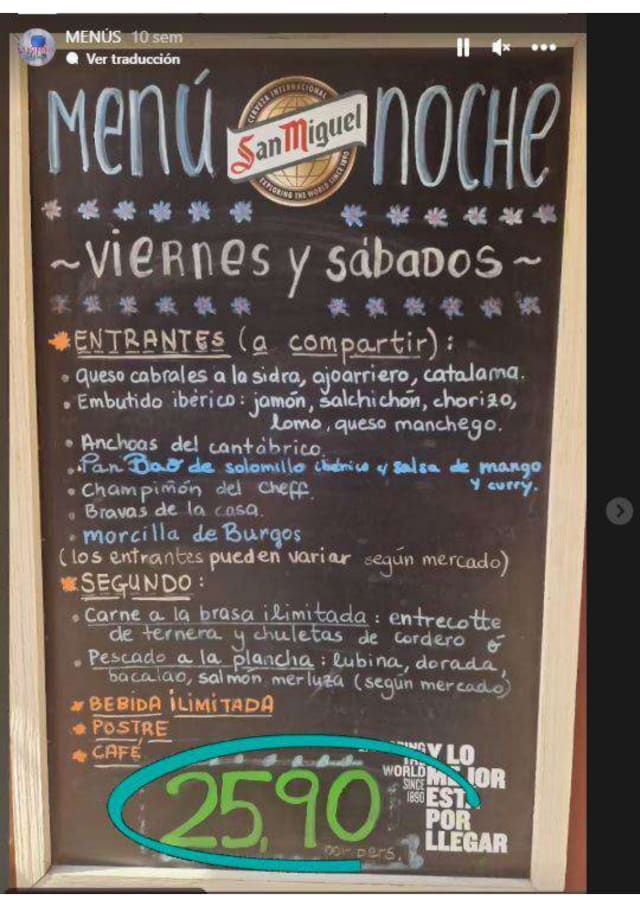 MENÚS 10 sem
Ver traducción
Menú
CERVEZA INTERNACIONAL
San Miguel
EXPLORING THE WORLD SINCE 1890
NOCHE
~VIERNES Y SÁBADOS~
ENTRANTES (a compartir):
• Queso cabrales a la sidra, ajoarriero, catalama.
• Embutido ibérico: jamón, salchichón, chorizo,
lomo, queso manchego.
• Anchoas del cantábrico.
• Pan Bao de solomillo ibérico y salsa de mango
y curry.
• Champiñón del Cheff.
• Bravas de la casa.
• morcilla de Burgos
(los entrantes pueden variar según mercado)
SEGUNDO:
• Carne a la brasa ilimitada: entrecotte
de ternera y chuletas de cordero ó
• Pescado a la plancha: lubina, dorada,
bacalao, salmón merluza (según mercado)
BEBIDA ILIMITADA
POSTRE
CAFÉ
25,90
por pers.
WORLD
SINCE
1890
Y LO
MEJOR
ESTÁ
POR
LLEGAR